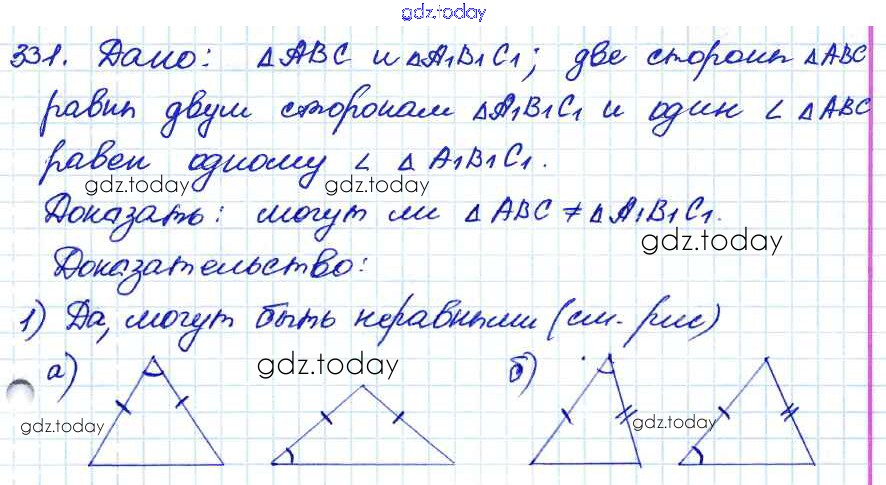 gdz.today
331. Дано: ΔABC и ΔA₁B₁C₁; две сторони ΔABC
равни двум сторонам ΔA₁B₁C₁ и один ∠ ΔABC
равен одному ∠ Δ A₁B₁C₁.
gdz.today gdz.today
Доказать: могут ли ΔABC ≠ ΔA₁B₁C₁.
gdz.today
Доказательство:
1) Да, могут быть неравными (см. рис)
а) gdz.today б)
gdz.today gdz.today